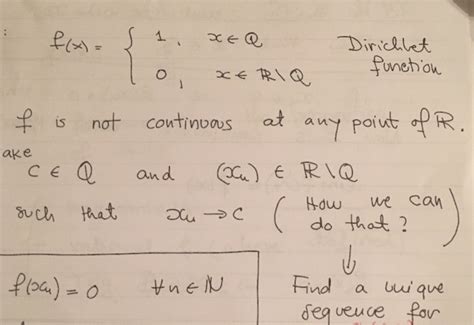 :
f(x) = { 1, x ∈ Q
0, x ∈ R\Q
Dirichlet
function
f is not continuous at any point of R.
ake
C ∈ Q and (xn) ∈ R\Q
such that xn → C
( How we can
do that? )
⇓
f(xn) = 0 ∀n ∈ N
Find a unique
sequence for